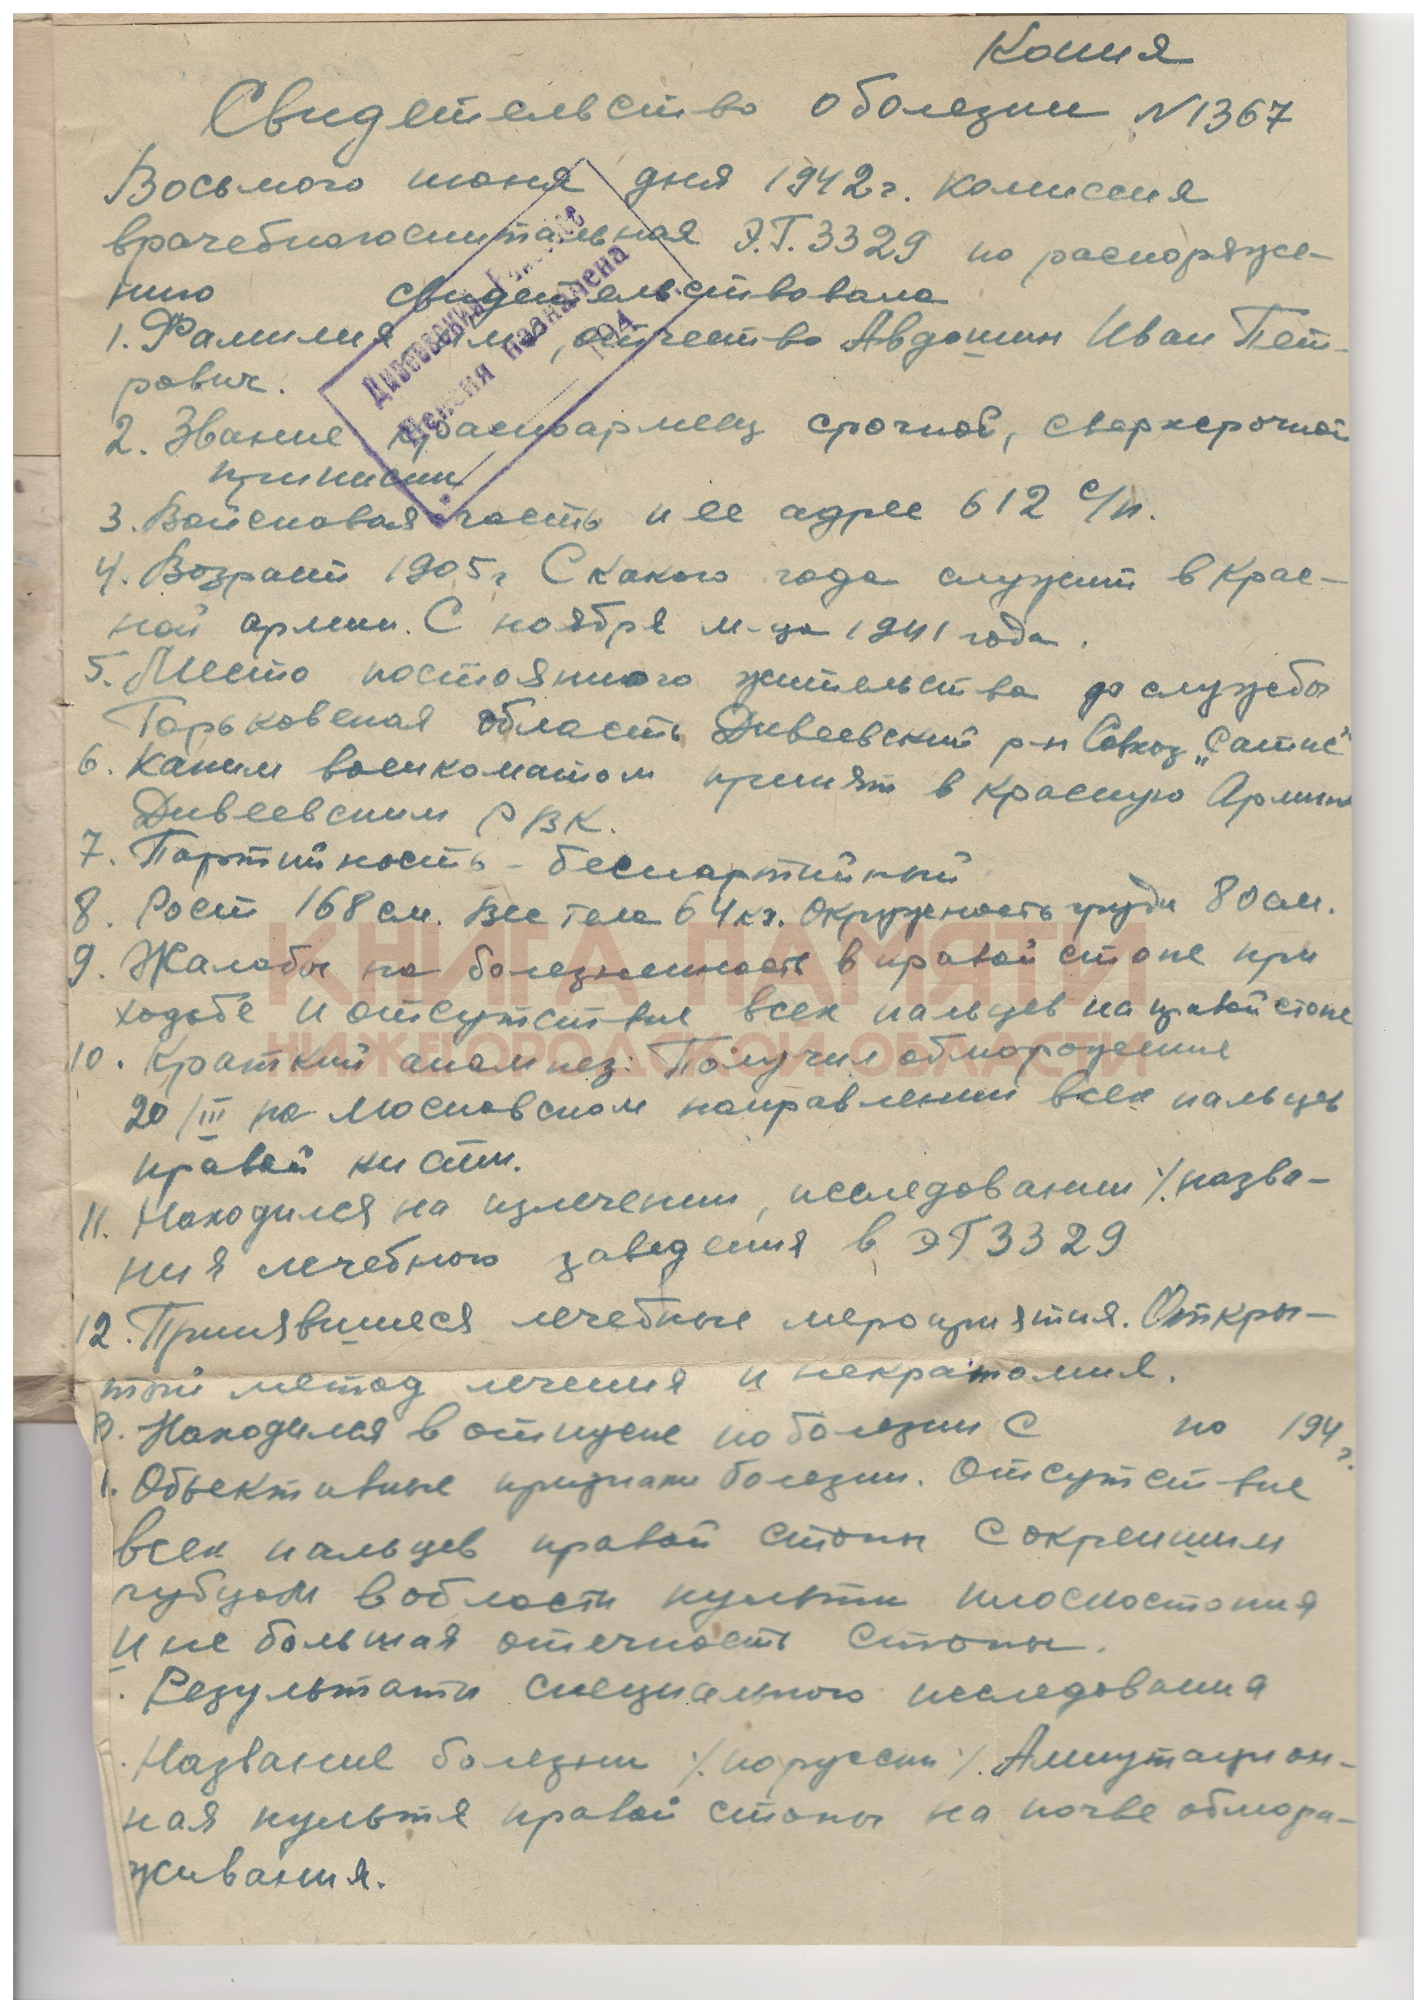 Копия
Свидетельство о болезни №1367
Восьмого июня дня 1942г. комиссия
врачебногоспитальная Э.Г. 3329 по распоряже-
нию свидетельствовала
1. Фамилия имя, отчество Авдошин Иван Пет-
рович.
2. Звание красноармеец срочной, сверхсрочной
приписки
3. Войсковая часть и ее адрес 612 с/п.
4. Возраст 1905г С какого года служит в Крас-
ной армии. С ноября м-ца 1941 года.
5. Место постоянного жительства до службы
Горьковская область Дивеевский р-н Совхоз „Сатис"
6. Каким военкоматом принят в Красную Армию
Дивеевским РВК.
7. Партийность - беспартийный
8. Рост 168 см. Вес тела 64 кг. Окружность груди 80 см.
9. Жалобы на болезненность в правой стопе при
ходьбе и отсутствие всех пальцев на правой стопе
10. Краткий анамнез: Получил обморожение
20/III на московском направлении всех пальцев
правой кисти.
11. Находился на излечении, исследовании /. назва-
ния лечебного заведения в ЭГ 3329
12. Принявшиеся лечебные мероприятия. Откры-
тый метод лечения и некратомия.
3. Находился в отпуске по болезни С по 194 г.
1. Объективные признаки болезни. Отсутствие
всех пальцев правой стопы с окрепшим
рубцом в области культи плоскостопия
и не большая отечность стопы.
. Результаты специального исследования
. Название болезни /. по русски /. Ампутацион-
ная культя правой стопы на почве обмора-
живания.
Дивеевский
Пенсия назначена
194
КНИГА ПАМЯТИ
НИЖЕГОРОДСКОЙ ОБЛАСТИ